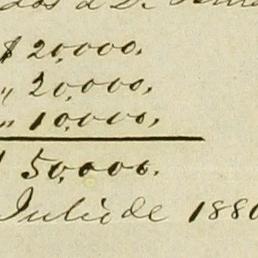 $ 20,000.
" 20,000.
" 10,000,
$ 50,000.
Julio de 1880